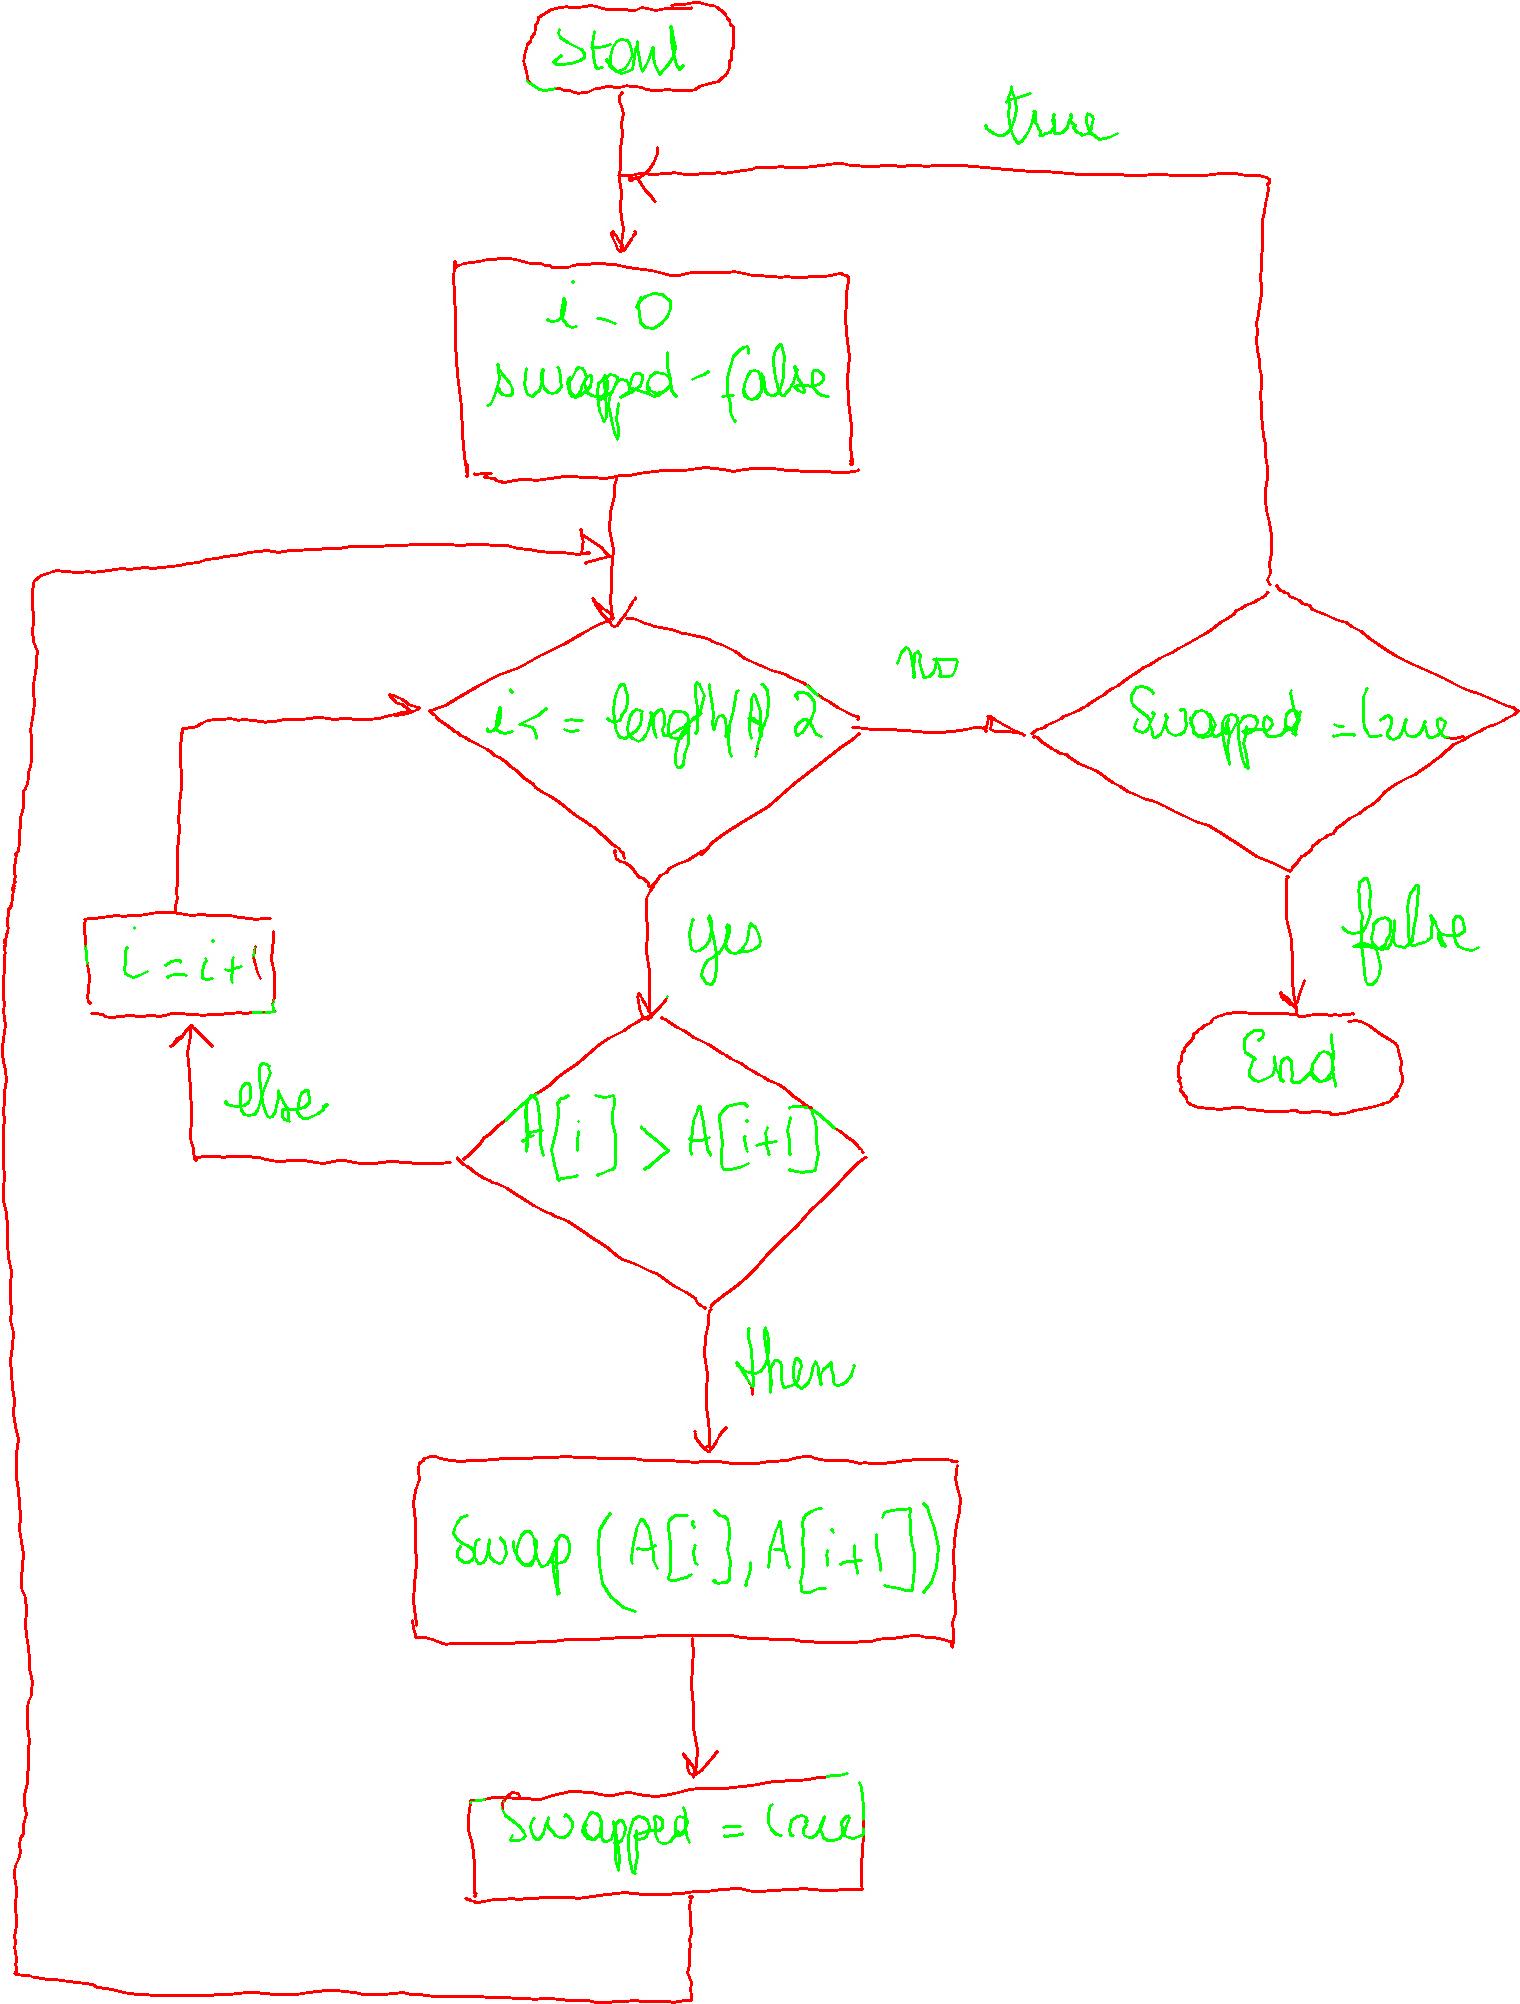 Start
true
i - 0
swapped - false
no
i <= length(A) 2
Swapped = true
yes
false
i = i+1
End
else
A[i] > A[i+1]
then
Swap (A[i], A[i+1])
Swapped = true